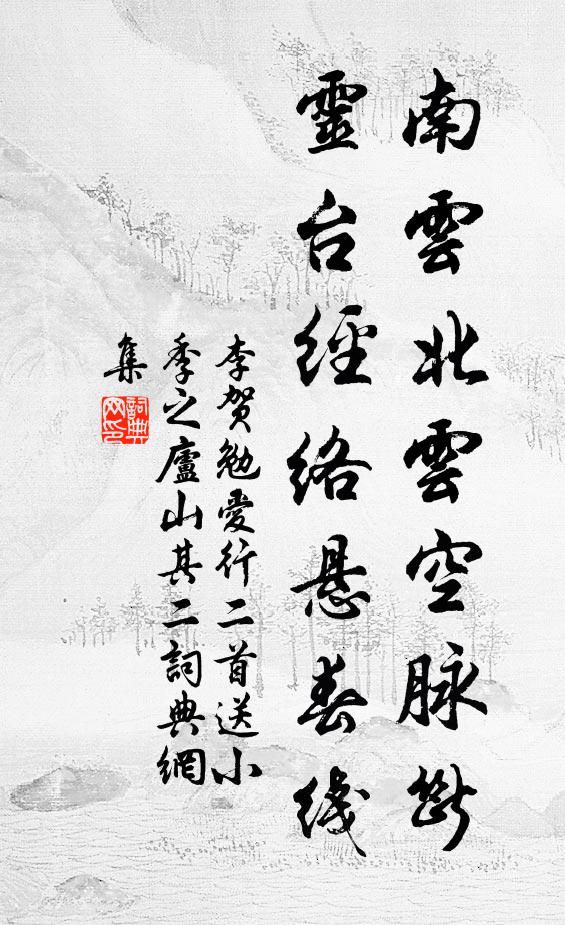 南雲北雲空脉斷
靈台經絡悬春线
李贺勉愛行二首送小
季之廬山其二詞典網
集
詞典网印